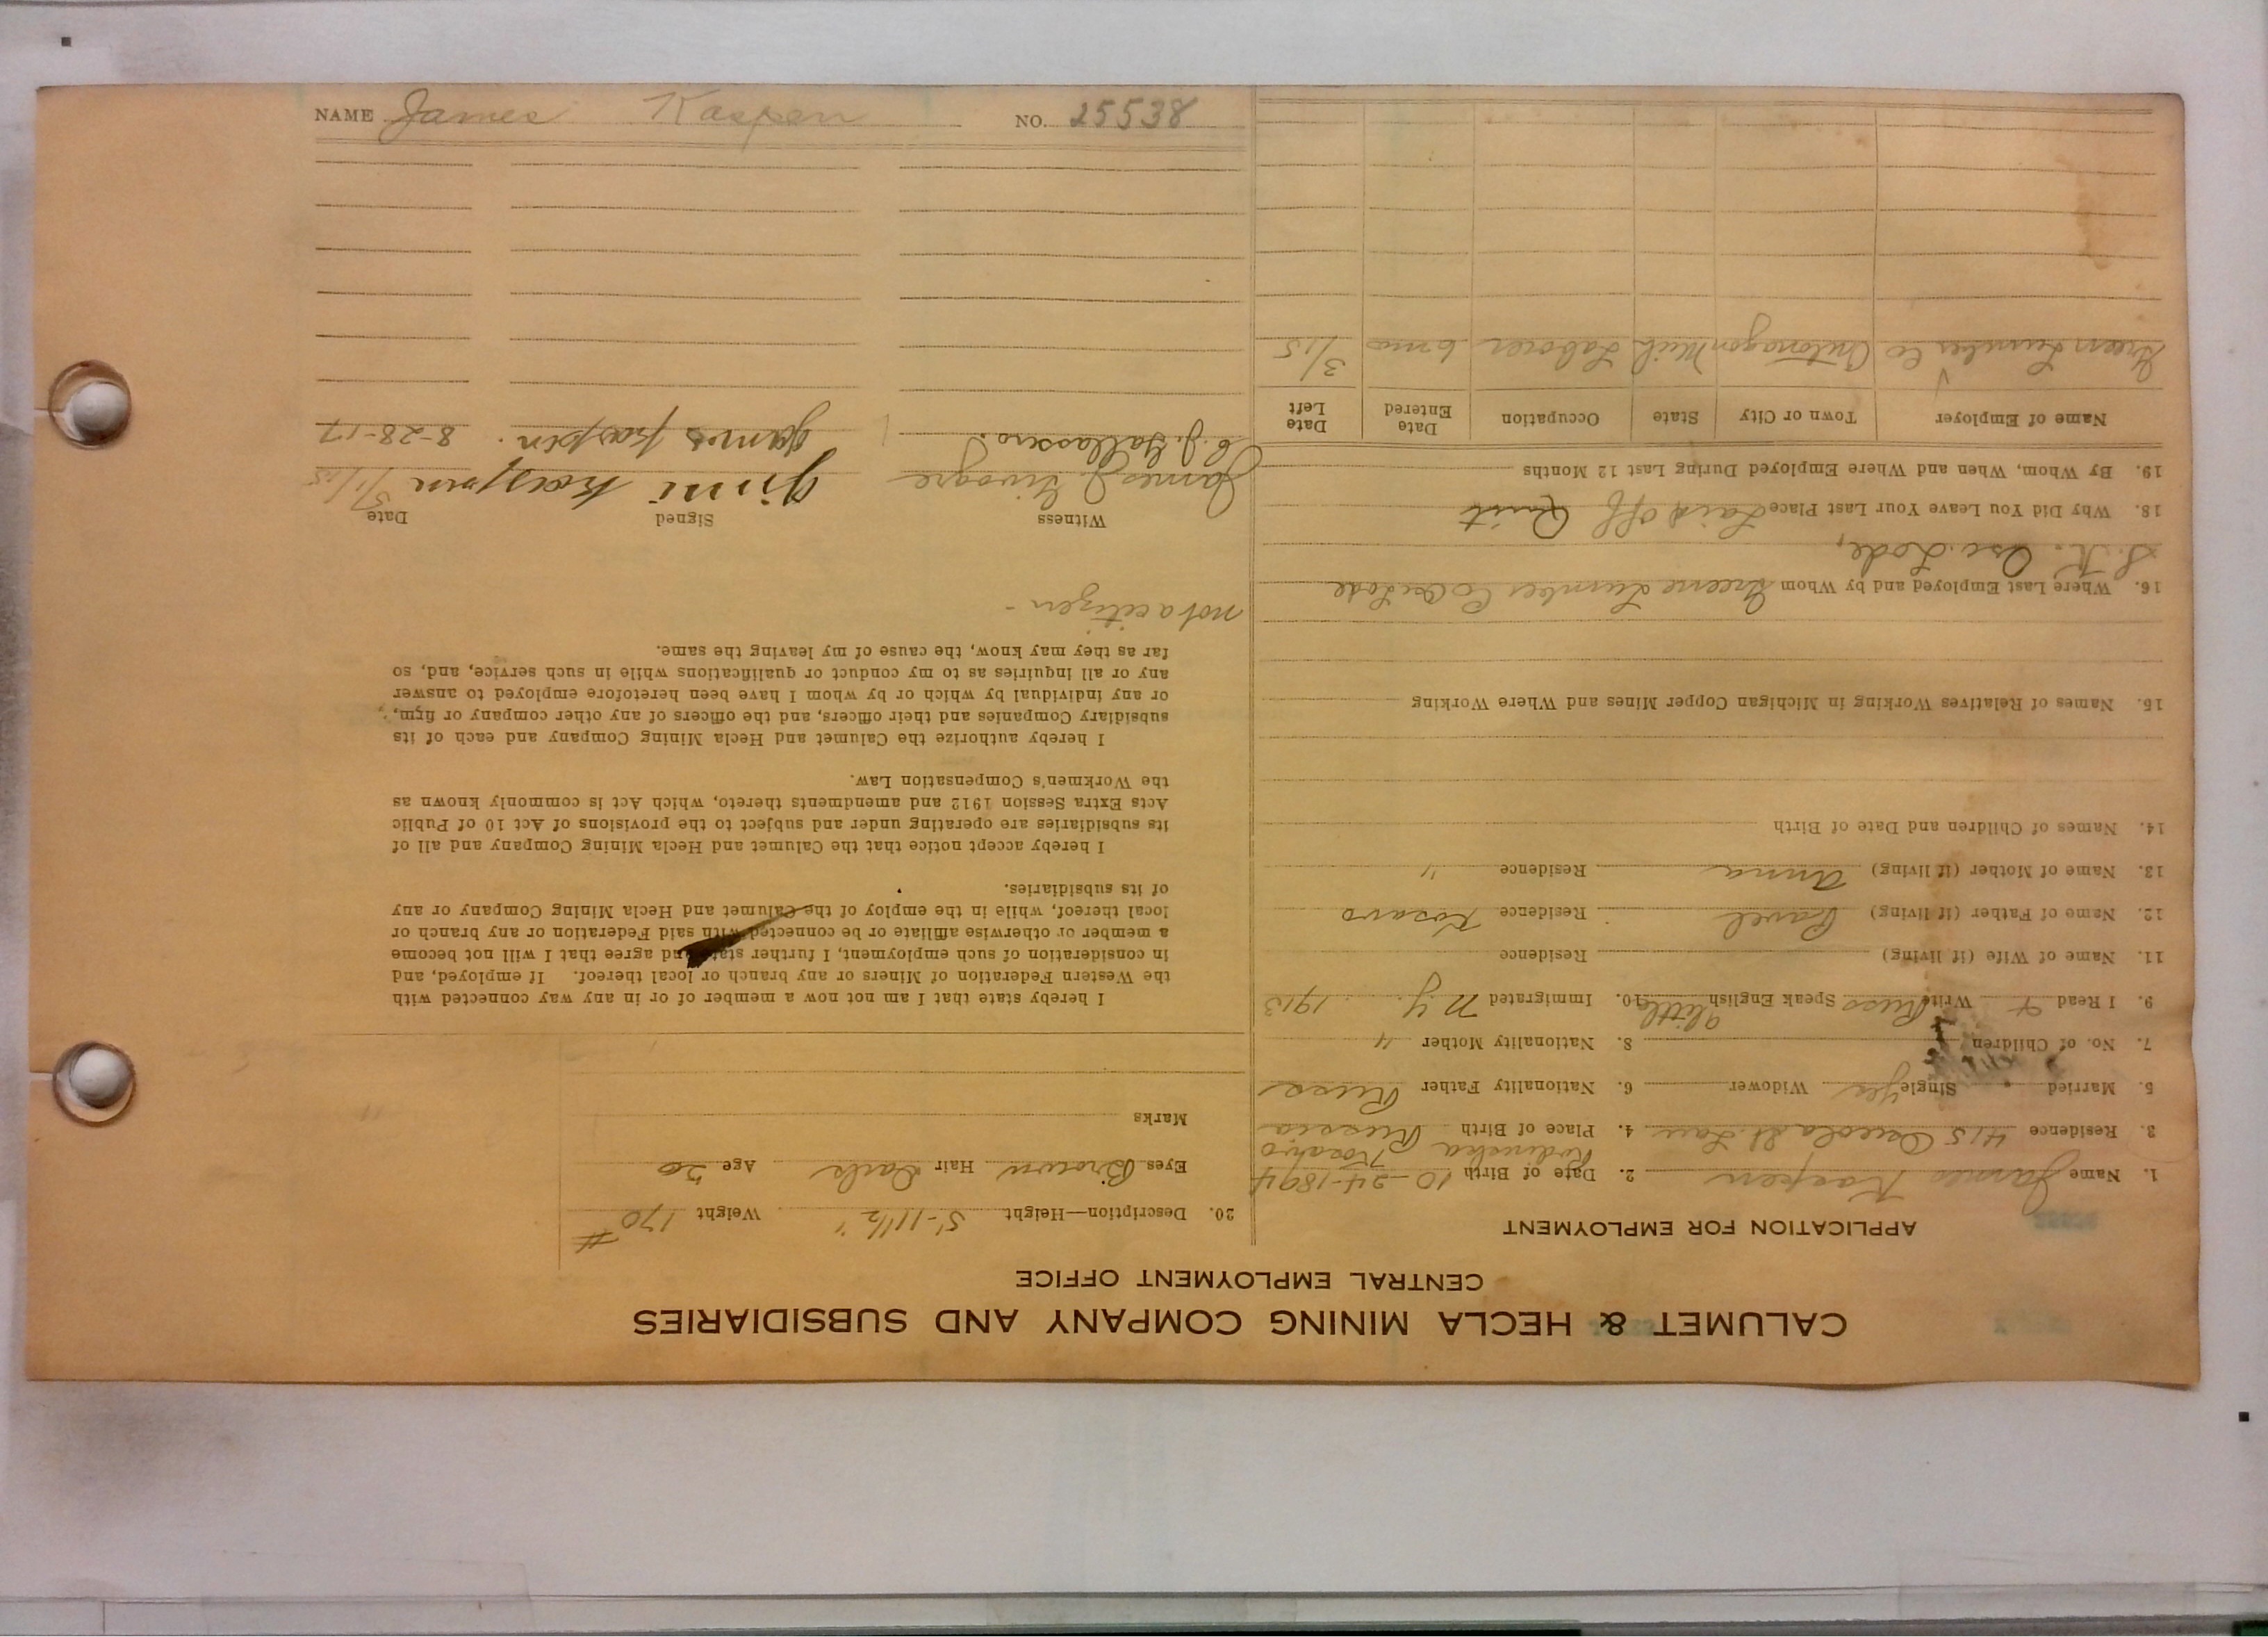 NAME James Kasper NO. 25538
CALUMET & HECLA MINING COMPANY AND SUBSIDIARIES
CENTRAL EMPLOYMENT OFFICE
APPLICATION FOR EMPLOYMENT
1. Name James Kaspen 2. Date of Birth 10-24-1894
Kosaro
3. Residence 415 Osceola St. Lau 4. Place of Birth Russia
5. Married Single Yes Widower 6. Nationality Father Russ
7. No. of Children 8. Nationality Mother "
9. I Read + Write Russ Speak English little 10. Immigrated N.Y. 1913
11. Name of Wife (if living) Residence
12. Name of Father (if living) Pavel Residence Kosaro
13. Name of Mother (if living) Anna Residence "
14. Names of Children and Date of Birth
15. Names of Relatives Working in Michigan Copper Mines and Where Working
16. Where Last Employed and by Whom Greene Lumber Co Osc Lode
S. K. Osc. Lode,
18. Why Did You Leave Your Last Place Laid off Quit
19. By Whom, When and Where Employed During Last 12 Months
Name of Employer Town or City State Occupation Date Entered Date Left
Green Lumber Co Ontonagon Mich Laborer 6 mos 3/15
20. Description—Height 5'-11½" Weight 170#
Eyes Brown Hair Dark Age 20
Marks
I hereby state that I am not now a member of or in any way connected with
the Western Federation of Miners or any branch or local thereof. If employed, and
in consideration of such employment, I further state and agree that I will not become
a member or otherwise affiliate or be connected with said Federation or any branch or
local thereof, while in the employ of the Calumet and Hecla Mining Company or any
of its subsidiaries.
I hereby accept notice that the Calumet and Hecla Mining Company and all of
its subsidiaries are operating under and subject to the provisions of Act 10 of Public
Acts Extra Session 1912 and amendments thereto, which Act is commonly known as
the Workmen's Compensation Law.
I hereby authorize the Calumet and Hecla Mining Company and each of its
subsidiary Companies and their officers, and the officers of any other company or firm,
or any individual by which or by whom I have been heretofore employed to answer
any or all inquiries as to my conduct or qualifications while in such service, and, so
far as they may know, the cause of my leaving the same.
not a citizen -
Witness Signed Date
James
James Kaspen. 8-28-17